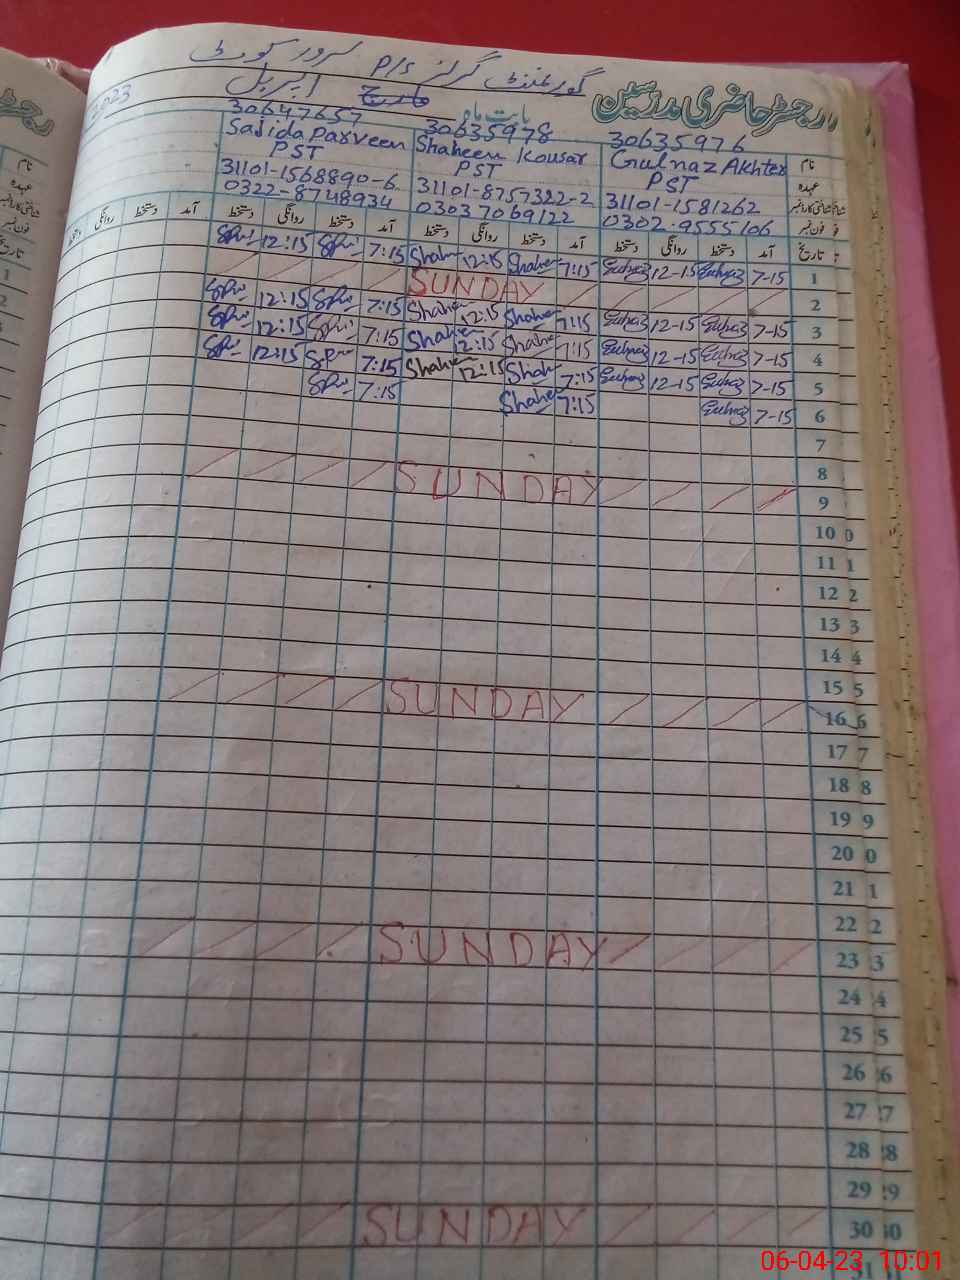 گورنمنٹ گرلز P/S سرور کوٹ
رجسٹر حاضری مدرسین
بابت ماہ
مارچ اپریل
2023
نام
30635976
Gulnaz Akhter
30635978
Shaheen Kousar
30647657
Sajida Parveen
عہدہ
PST
PST
PST
شناختی کارڈ نمبر
31101-1581262
31101-8757322-2
31101-1568890-6
فون نمبر
0302-9555106
03037069122
0322-8748934
تاریخ آمد دستخط روانگی دستخط آمد دستخط روانگی دستخط آمد دستخط روانگی دستخط آمد دستخط روانگی دستخط
1 7-15 Gulnaz 12-15 Gulnaz 7:15 Shaheen 12:15 Shaheen 7:15 12:15
2 SUNDAY
3 7-15 Gulnaz 12-15 Gulnaz 7:15 Shaheen 12:15 Shaheen 7:15 12:15
4 7-15 Gulnaz 12-15 Gulnaz 7:15 Shaheen 12:15 Shaheen 7:15 12:15
5 7-15 Gulnaz 12-15 Gulnaz 7:15 Shaheen 12:15 Shaheen 7:15 12:15
6 7-15 Gulnaz 7:15 Shaheen 7:15
7
8
9 SUNDAY
10
11
12
13
14
15
16 SUNDAY
17
18
19
20
21
22
23 SUNDAY
24
25
26
27
28
29
30 SUNDAY
06-04-23 10:01